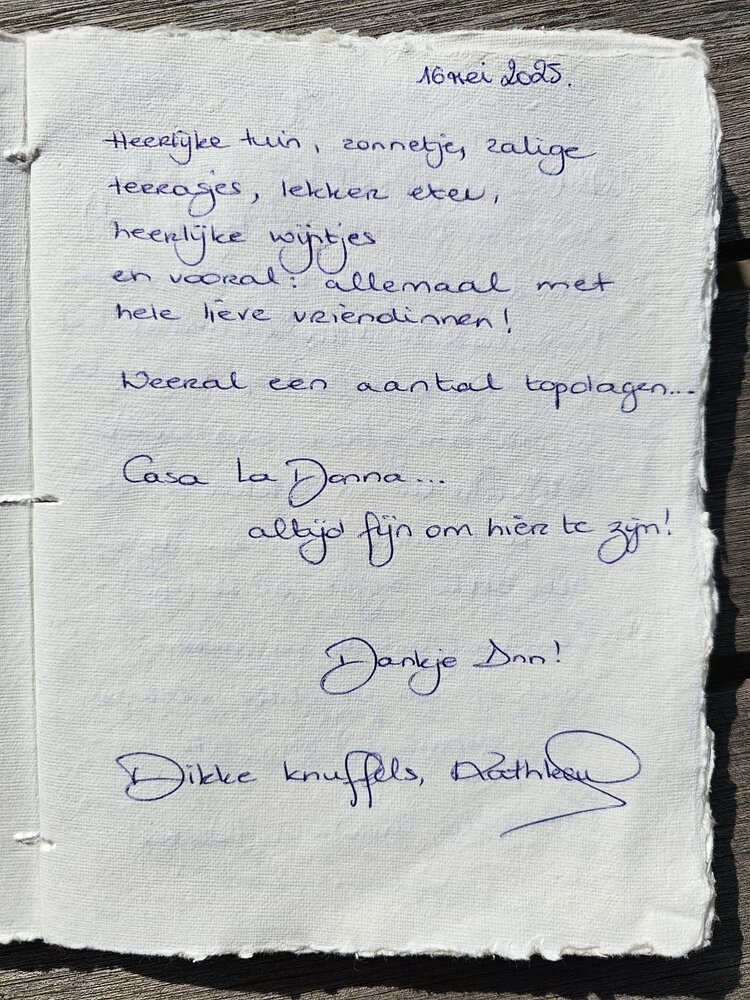 16 mei 2025.
Heerlijke tuin, zonnetje, zalige
terrasjes, lekker eten,
heerlijke wijntjes
en vooral: allemaal met
hele lieve vriendinnen!
Weeral een aantal topdagen...
Casa La Donna...
altijd fijn om hier te zijn!
Dankje Ann!
Dikke knuffels, Kathleen